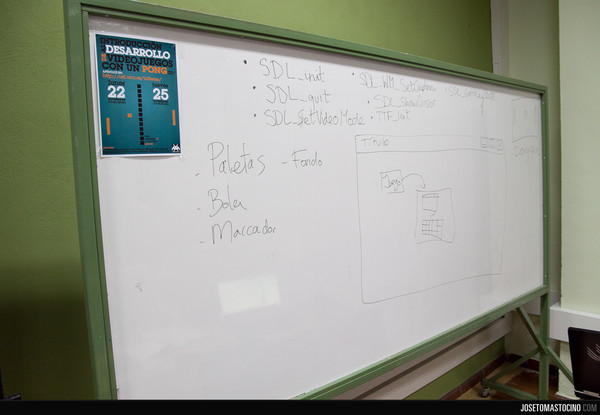 INTRODUCCIÓN
AL DESARROLLO
DE VIDEOJUEGOS
CON UN PONG
22
25
• SDL_init
• SDL_quit
• SDL_SetVideoMode
• SDL_WM_SetCaption
• SDL_ShowCursor
• TTF_init
- Paletas
- Fondo
- Bola
- Marcador
Título
Juego
JOSETOMASTOCINO.COM